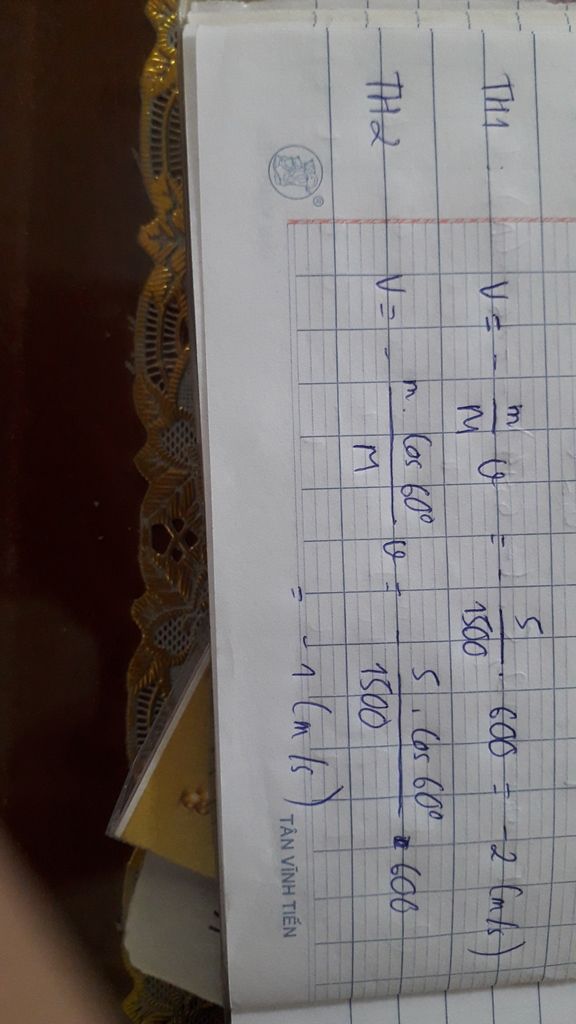 TH1 V = - m/M v = - 5/1500 . 600 = -2 (m/s)
TH2 V = - m . cos 60°/M . v = - 5 . cos 60°/1500 . 600
= -1 (m/s)
TÂN VĨNH TIẾN